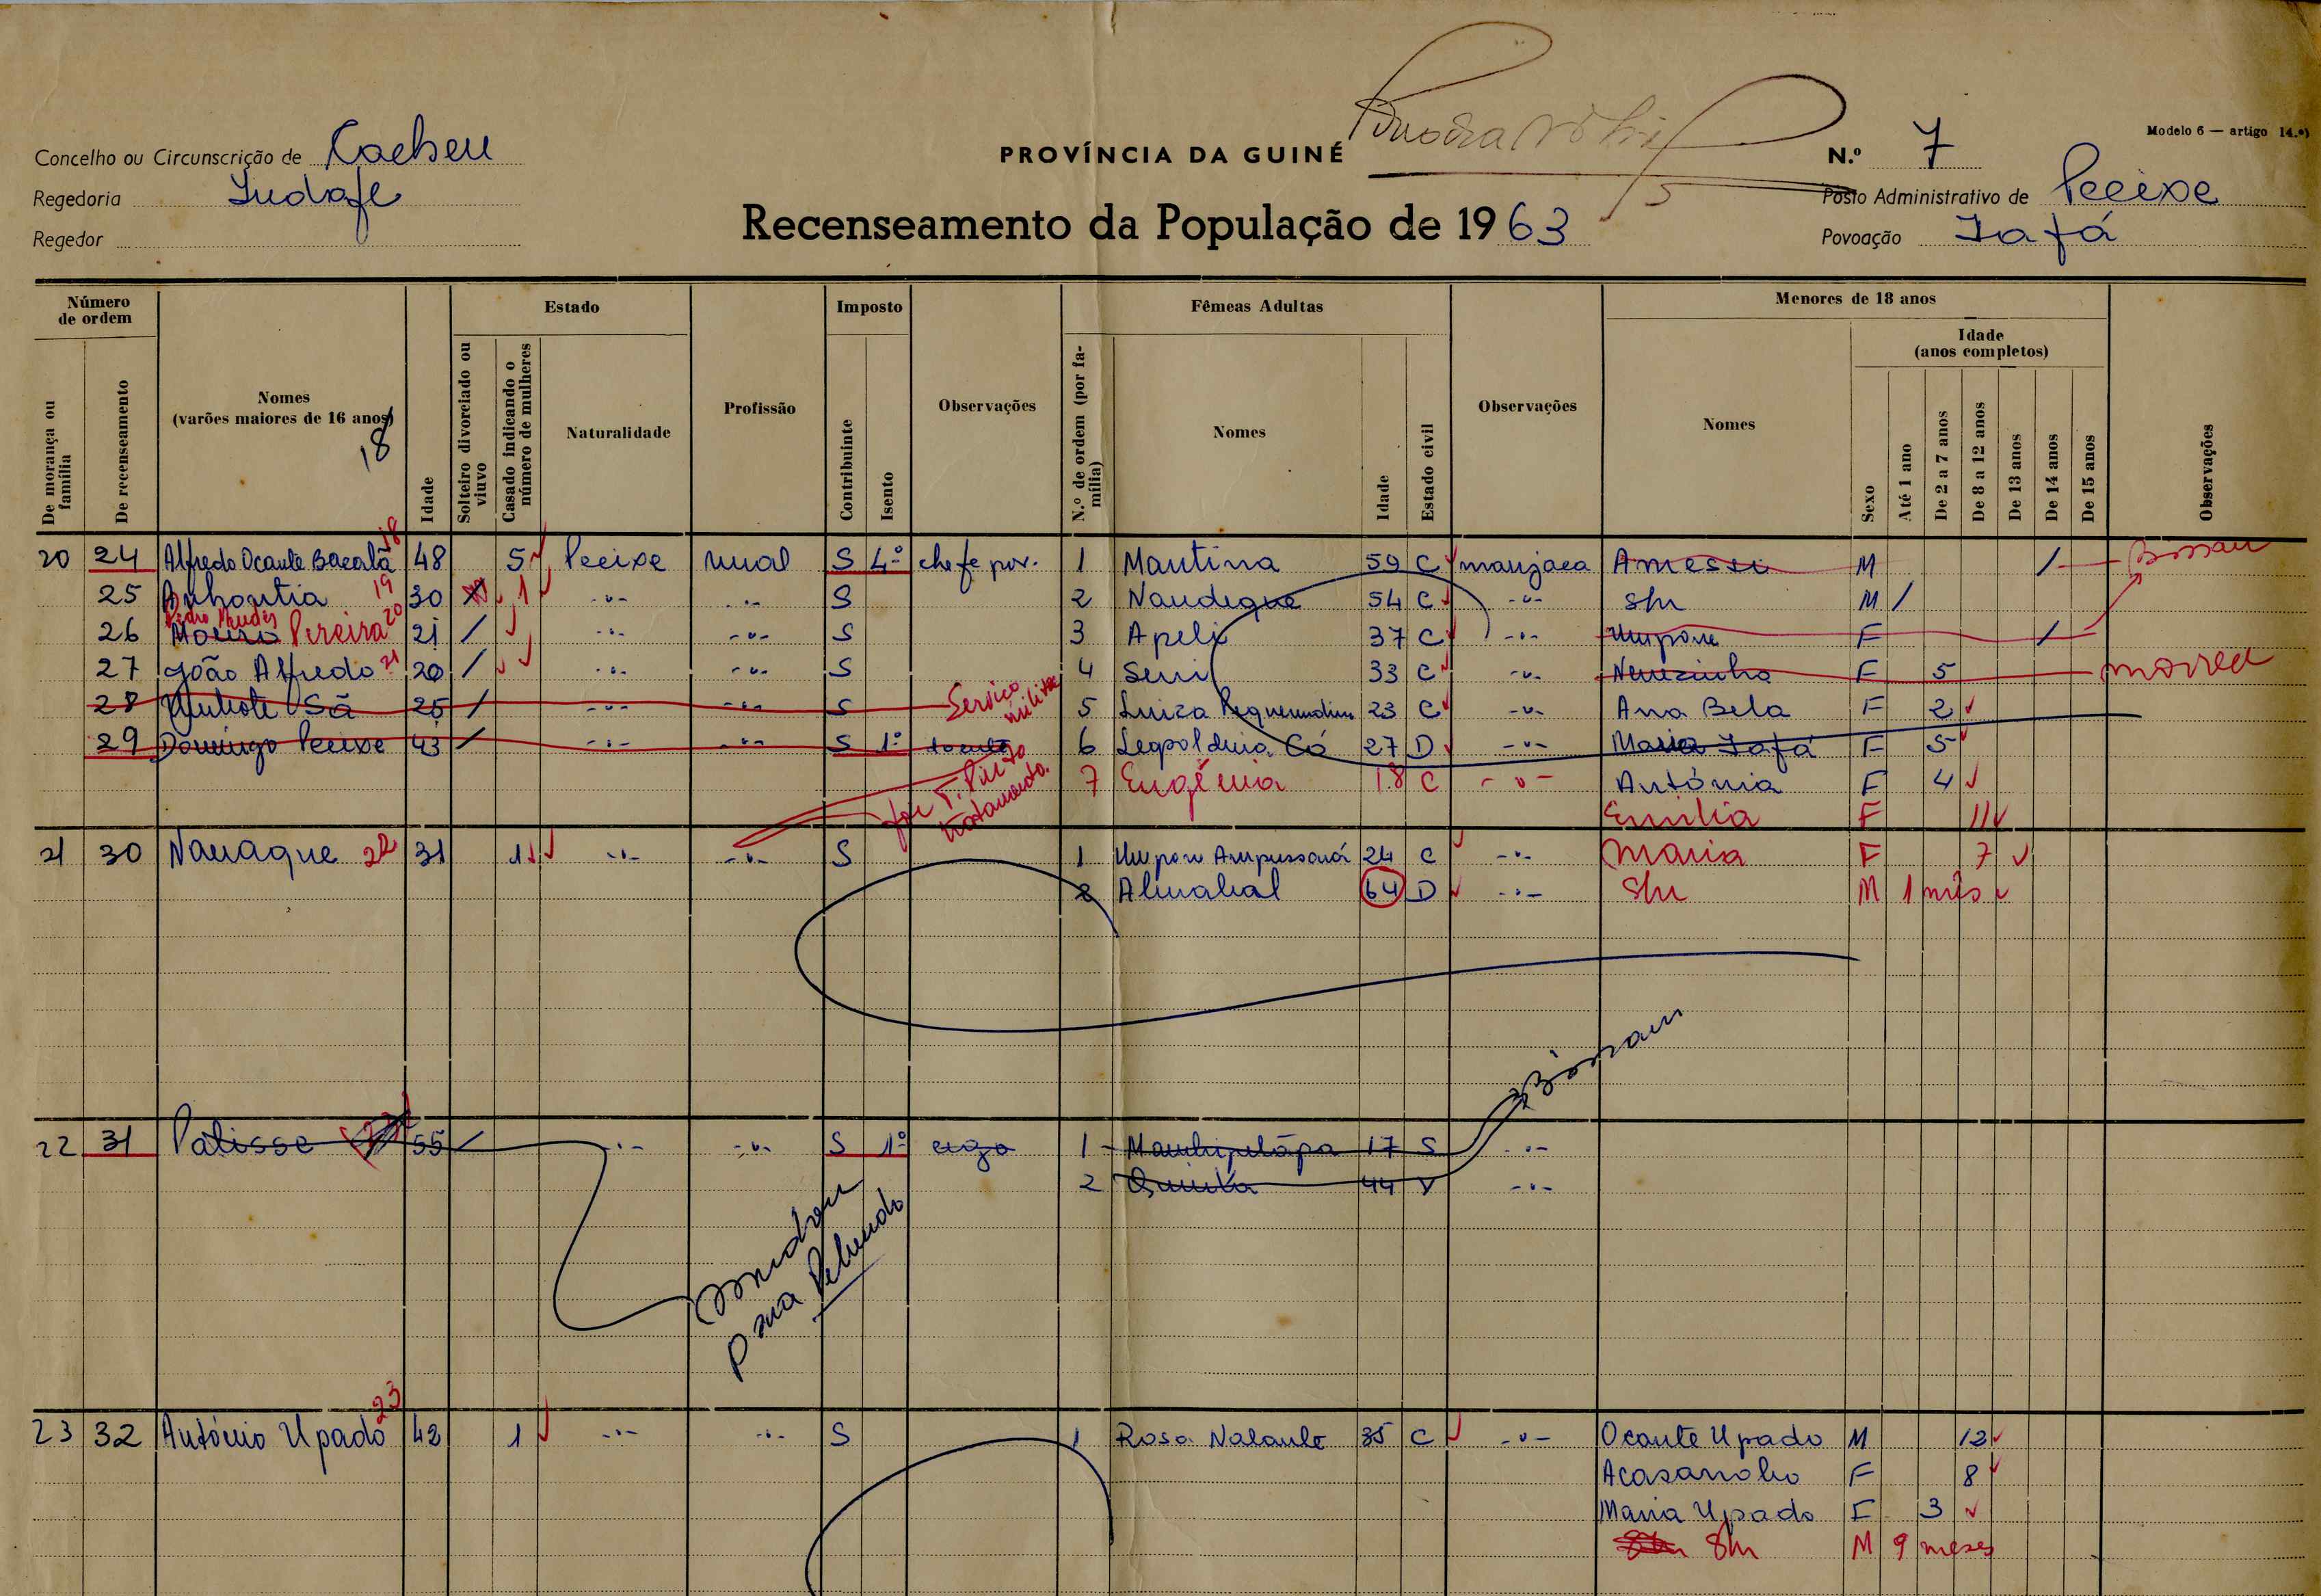 Modelo 6 — artigo 14.º)
Concelho ou Circunscrição de Cacheu
PROVÍNCIA DA GUINÉ
N.º 7
Regedoria
Posto Administrativo de Pecixe
Regedor
Recenseamento da População de 1963
Povoação Iafá
Número de ordem
De morança ou família
De recenseamento
Nomes
(varões maiores de 16 anos)
18
Idade
Estado
Solteiro divorciado ou viuvo
Casado indicando o número de mulheres
Naturalidade
Profissão
Imposto
Contribuinte
Isento
Observações
Fêmeas Adultas
N.º de ordem (por família)
Nomes
Idade
Estado civil
Observações
Menores de 18 anos
Nomes
Sexo
Idade
(anos completos)
Até 1 ano
De 2 a 7 anos
De 8 a 12 anos
De 13 anos
De 14 anos
De 15 anos
Observações
20 24 Alfredo Ocante Bacalã 18 48 5 Pecixe rural S 4º chefe pov. 1 Mantina 59 C manjaca M / Bissau
25 19 30 1 -"- -"- S 2 Nandigue 54 C -"- Shr M /
Pedro Mendes
26 Pereira 20 21 / -"- -"- S 3 Apeli 37 C -"- Umpone F /
27 João Alfredo 21 20 / -"- -"- S 4 Seni 33 C -"- F 5 morreu
28 Sá 25 / -"- -"- S Serviço militar 5 Luiza 23 C -"- Ana Bela F 2
29 Domingo Pecixe 43 / -"- -"- S 1º 6 Leopoldina Có 27 D -"- Maria Iafá F 5
tratamento. 7 Eugénia 18 C -"- António F 4
Emilia F 11
21 30 Nauaque 22 31 1 -"- -"- S 1 24 C -"- Maria F 7
2 Almabal 64 D -"- Shr M 1 mês
Bissau
22 31 Patisse 55 / -"- -"- S 1º cego 1 17 S -"-
2 Quinta 44 V -"-
mudou
para
23 32 António Upado 23 42 1 -"- -"- S 1 Rosa Nalante 35 C -"- Ocante Upado M 12
F 8
Maria Upado F 3
Shr M 9 meses